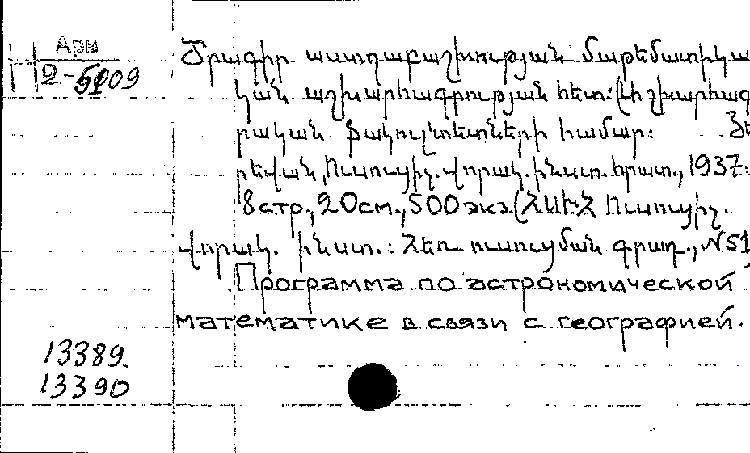 Арм
2-5209
Ծրագիր աստղաբաշխության մաթեմատիկա
կան աշխարհագրության հետ: (Աշխարհագ
րական ֆակուլտետների համար: Յե
րեվան, Ուսուցիչ. վորակ. ինստ. հրատ., 1937:
8 стр., 20 см., 500 экз. (ՀՍԽՀ Ուսուցիչ.
վորակ. ինստ.: Հեռ. ուսուցման գրադ., №51
Программа по астрономической
математике в связи с географией.
13389.
13390